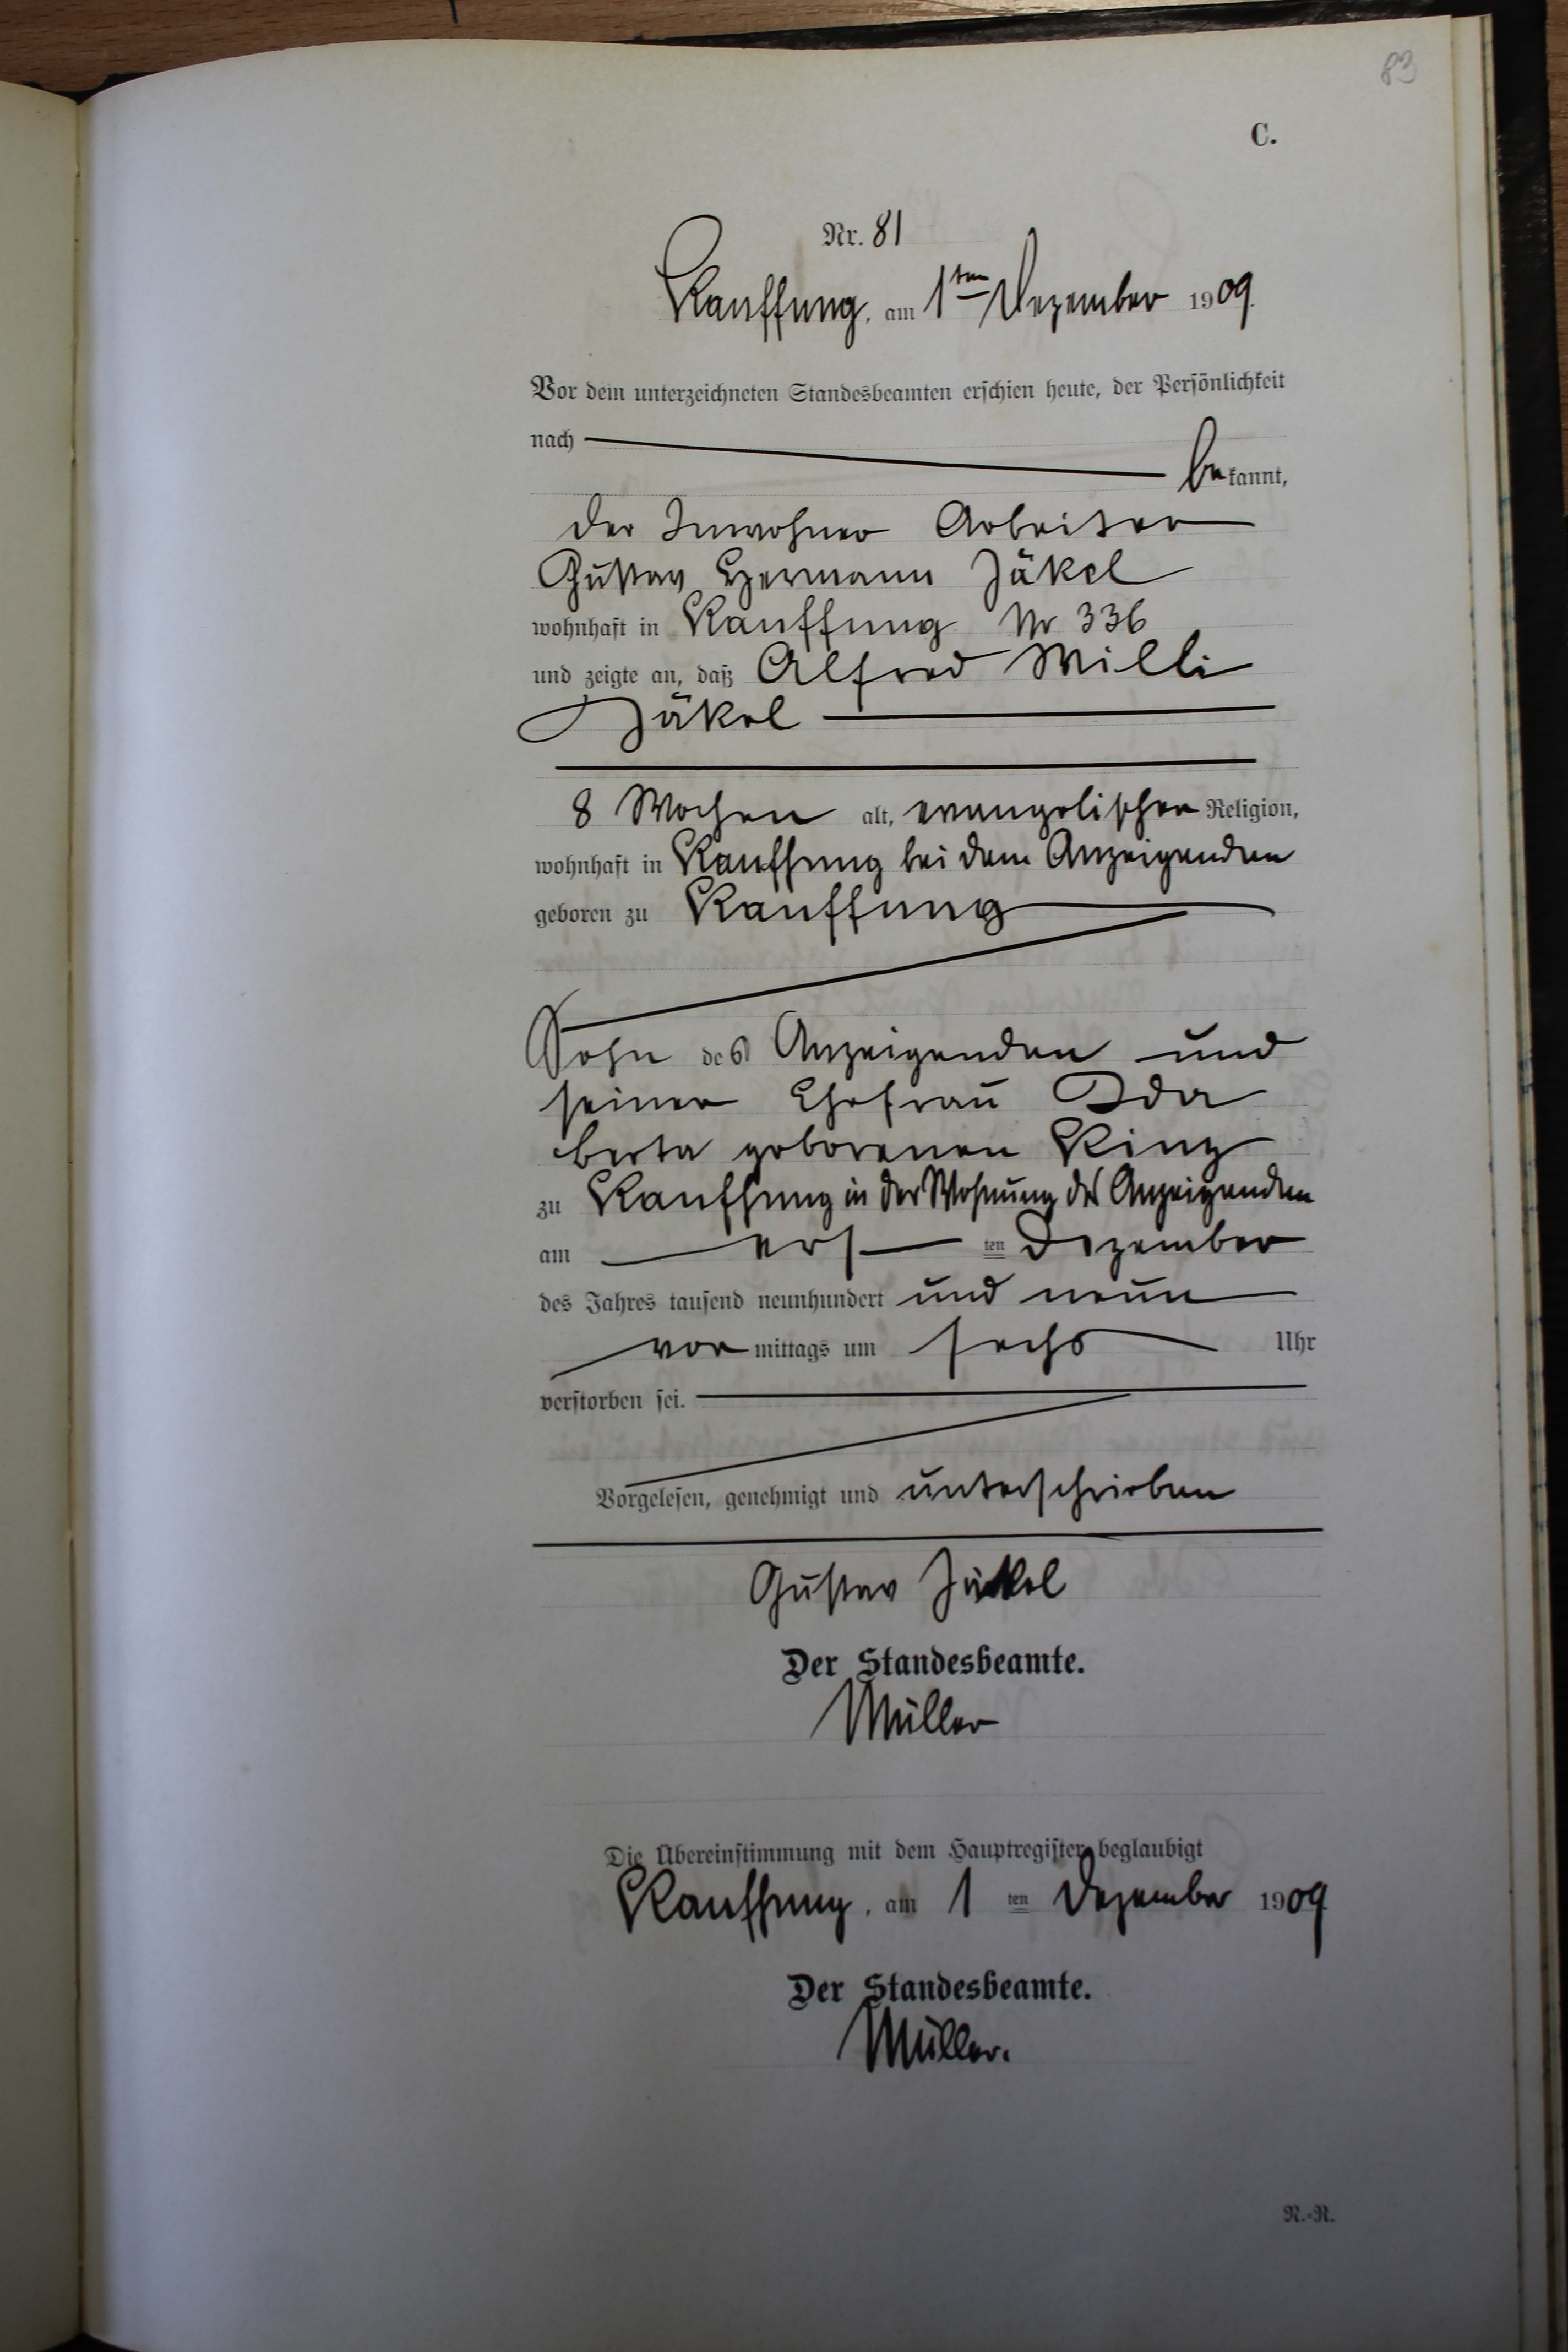 83
C.
Nr. 81
Kauffung, am 1ten Dezember 1909.
Vor dem unterzeichneten Standesbeamten erschien heute, der Persönlichkeit
nach
bekannt,
der Inwohner Arbeiter
Gustav Hermann Jäkel
wohnhaft in Kauffung Nr 336
und zeigte an, daß Alfred Willi
Jäkel
8 Wochen alt, evangelischer Religion,
wohnhaft in Kauffung bei dem Anzeigenden
geboren zu Kauffung
Sohn des Anzeigenden und
seiner Ehefrau Ida
berta geborenen Kinz
zu Kauffung in der Wohnung des Anzeigenden
am ersten Dezember
des Jahres tausend neunhundert und neun
vormittags um sechs Uhr
verstorben sei.
Vorgelesen, genehmigt und unterschrieben
Gustav Jäkel
Der Standesbeamte.
Müller
Die Übereinstimmung mit dem Hauptregister beglaubigt
Kauffung, am 1ten Dezember 1909
Der Standesbeamte.
Müller.
N.-R.